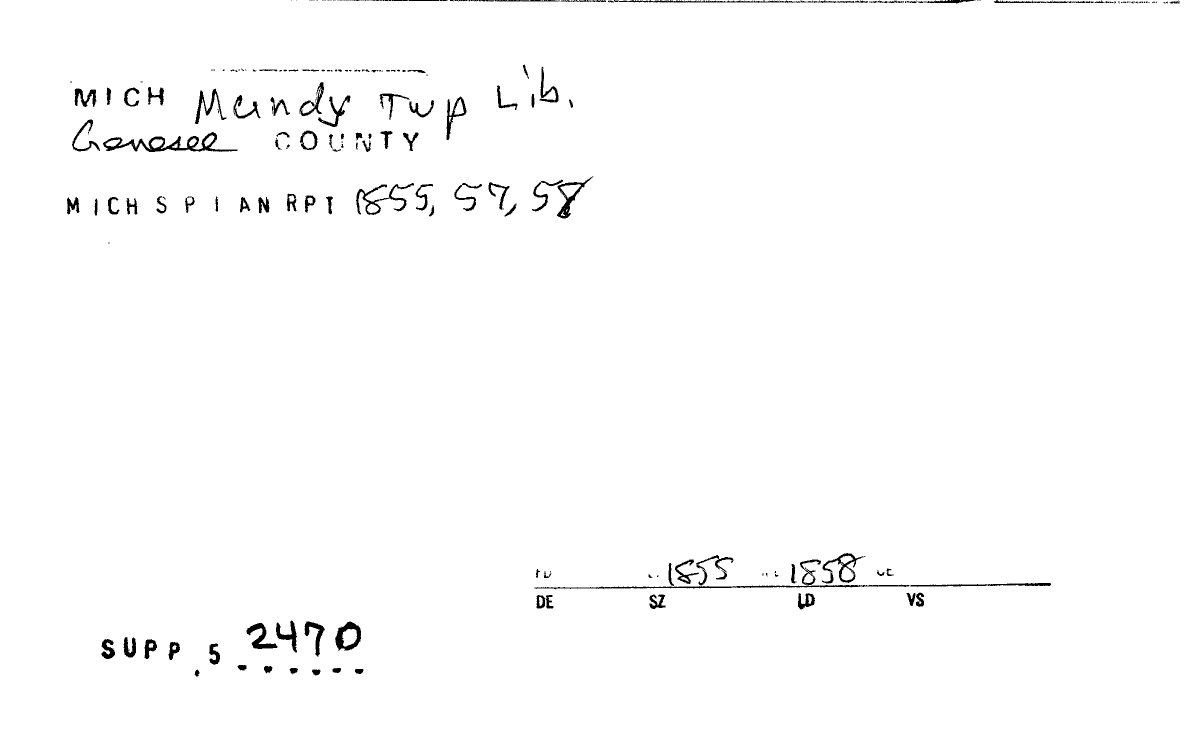 MICH Mundy Twp Lib.
Genesee COUNTY
MICH S P I AN RPT 1855, 57, 58
1855 1858
DE SZ LD VS
SUPP.5 2470